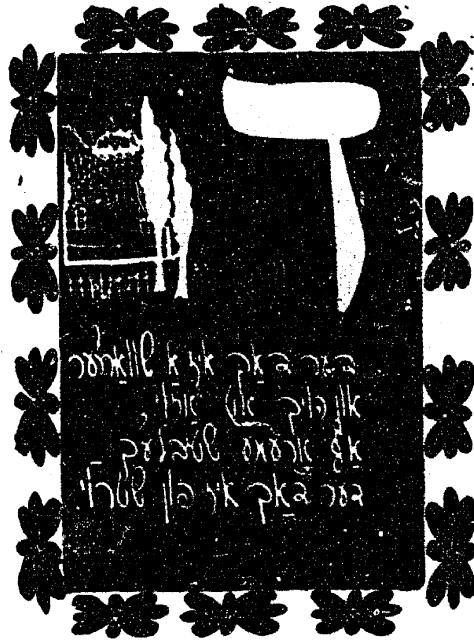 ד
דער דאַך איז אַ שוואַרצער
און הויך אַזוי,
אַף אָרעמע שטיבלעך
דער דאַך איז פון שטרוי